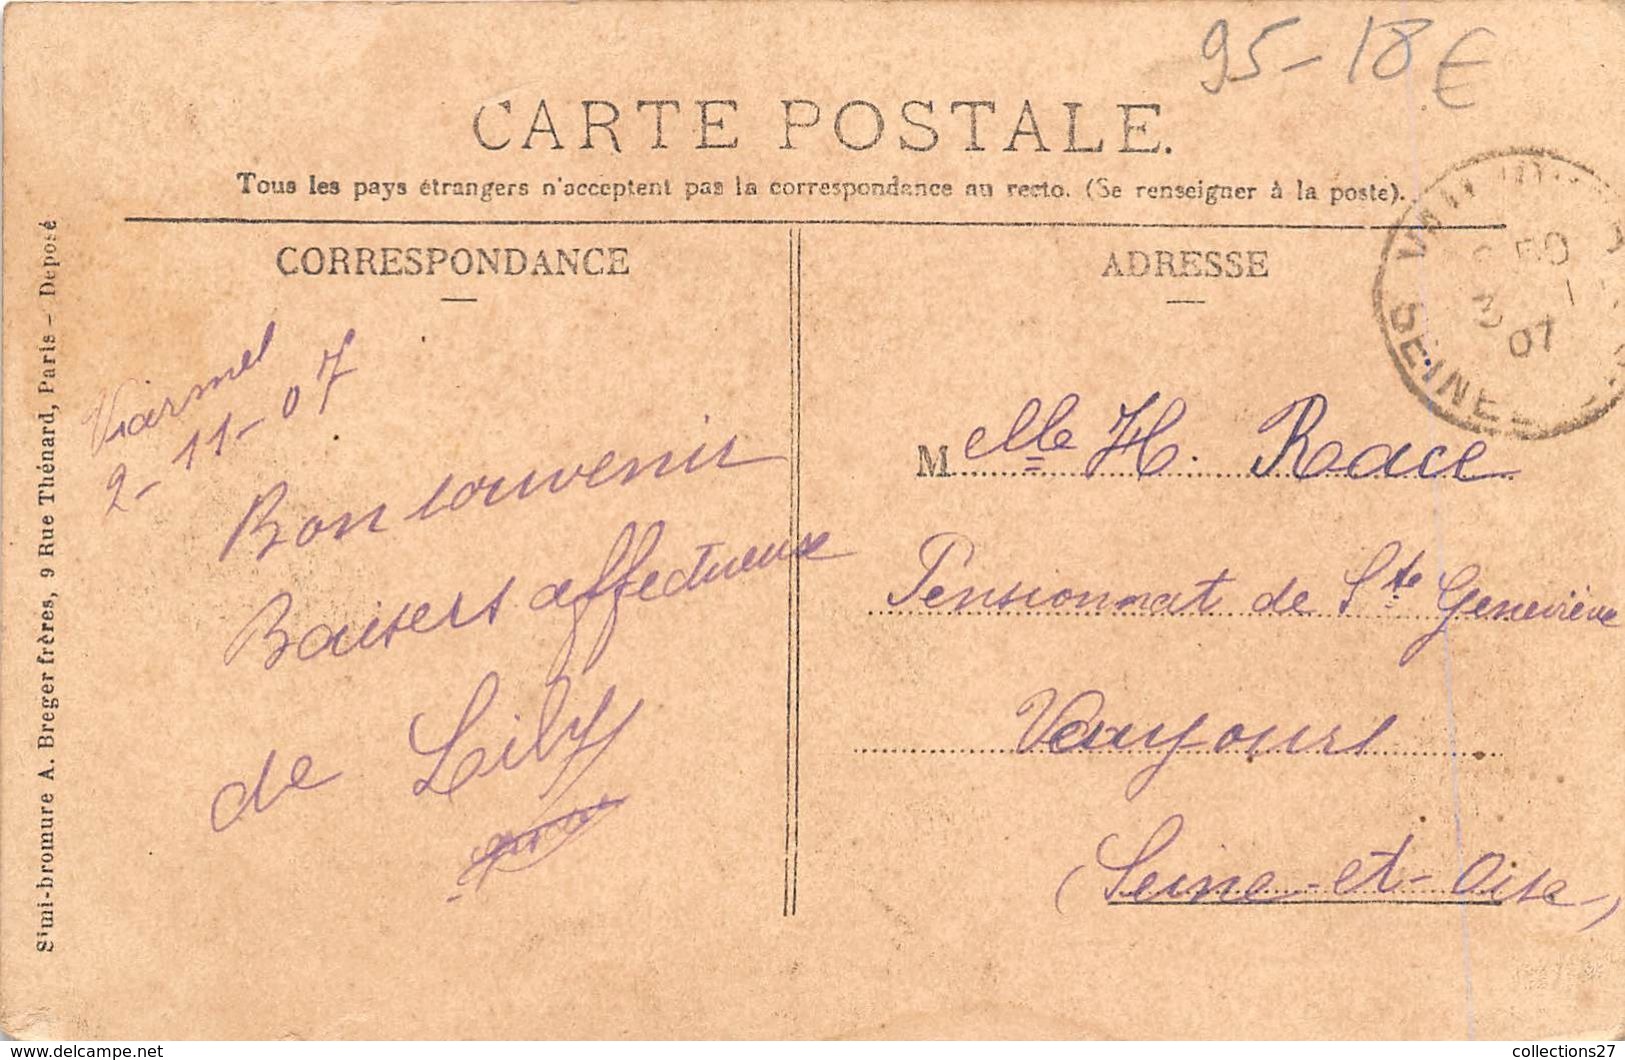 95-18 €
CARTE POSTALE.
Tous les pays étrangers n'acceptent pas la correspondance au recto. (Se renseigner à la poste).
CORRESPONDANCE
Viarmel
2-11-07
Bon souvenir
Baisers affectueux
de Lily
ADRESSE
Melle H. Race
Pensionnat de Ste Geneviève
Vaujours
(Seine-et-Oise)
3
07
SEINE
Simi-bromure A. Breger frères, 9 Rue Thénard, Paris - Déposé
collections27